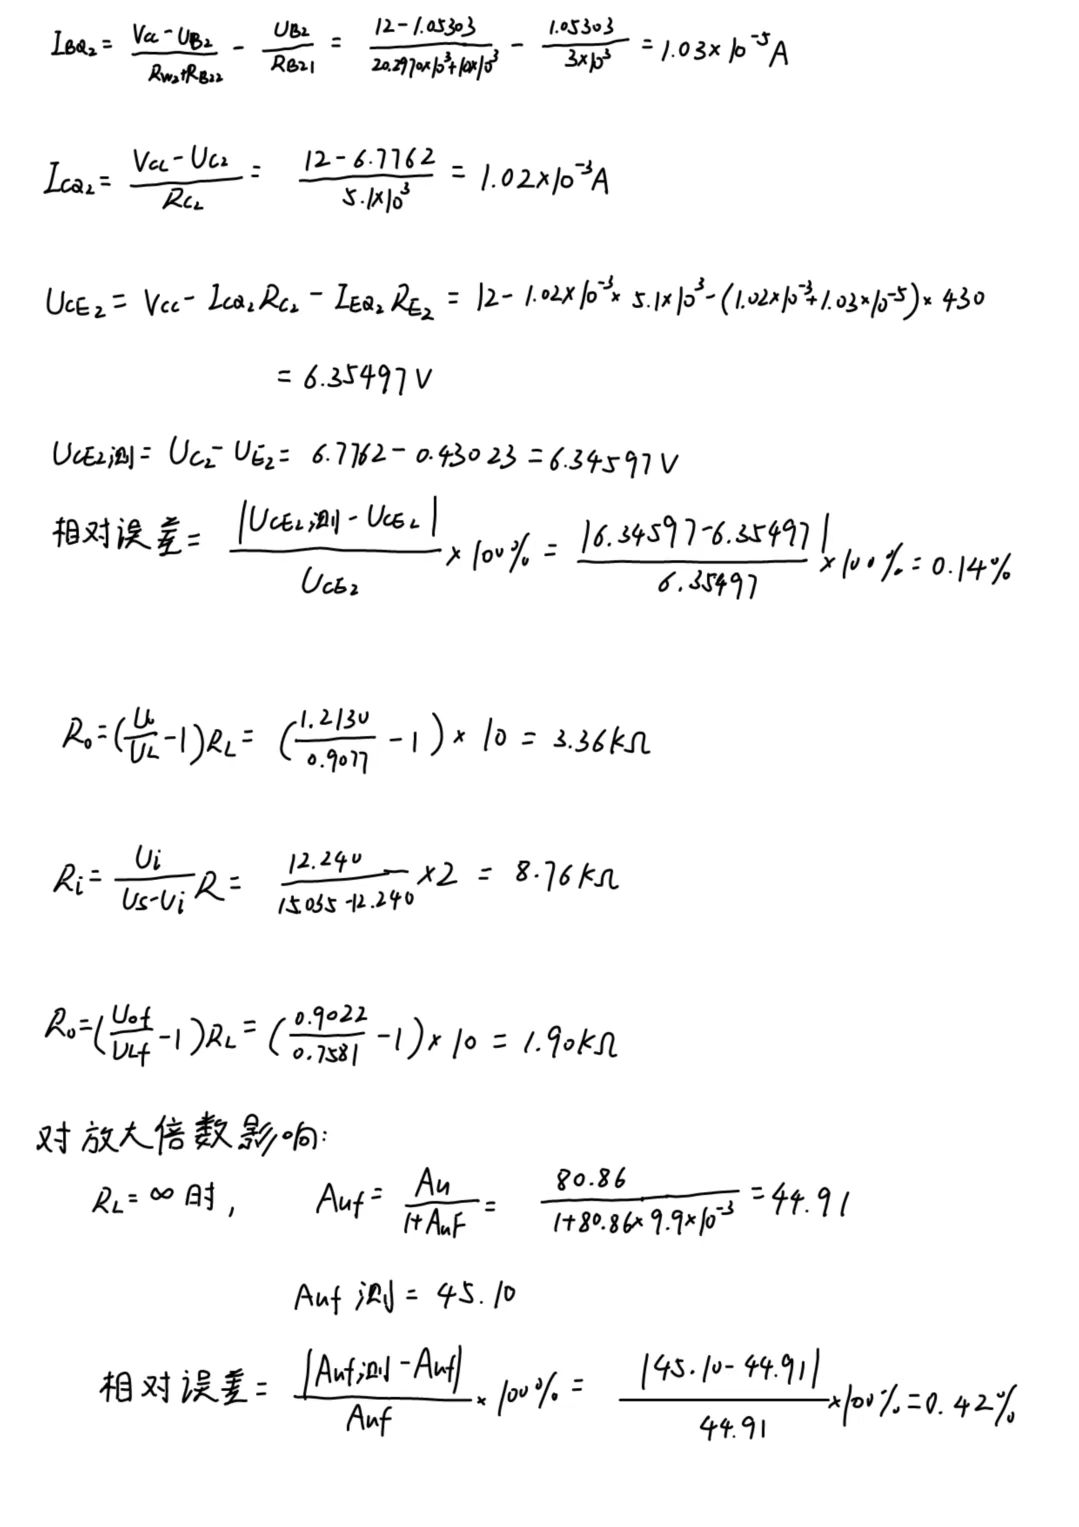 I_BQ2 = (Vcc-U_B2)/(R_W2+R_B22) - U_B2/R_B21 = (12-1.05303)/(20.2970×10³+10×10³) - 1.05303/(3×10³) = 1.03×10⁻⁵A
I_CQ2 = (Vcc-U_C2)/R_C2 = (12-6.7762)/(5.1×10³) = 1.02×10⁻³A
U_CE2 = Vcc - I_CQ2 R_C2 - I_EQ2 R_E2 = 12 - 1.02×10⁻³×5.1×10³-(1.02×10⁻³+1.03×10⁻⁵)×430
= 6.35497V
U_CE2测 = U_C2 - U_E2 = 6.7762-0.43023 = 6.34597V
相对误差 = |U_CE2测-U_CE2|/U_CE2 ×100% = |6.34597-6.35497|/6.35497 ×100% = 0.14%
R₀=(U₀/U_L -1)R_L = (1.2130/0.9077 -1)×10 = 3.36kΩ
Ri = Ui/(Us-Ui) R = 12.240/(15.035-12.240) ×2 = 8.76kΩ
R₀=(Uof/ULf -1)R_L = (0.9022/0.7581 -1)×10 = 1.90kΩ
对放大倍数影响:
R_L=∞时, Auf = Au/(1+AuF) = 80.86/(1+80.86×9.9×10⁻³) = 44.91
Auf测 = 45.10
相对误差 = |Auf测-Auf|/Auf ×100% = |45.10-44.91|/44.91 ×100% = 0.42%